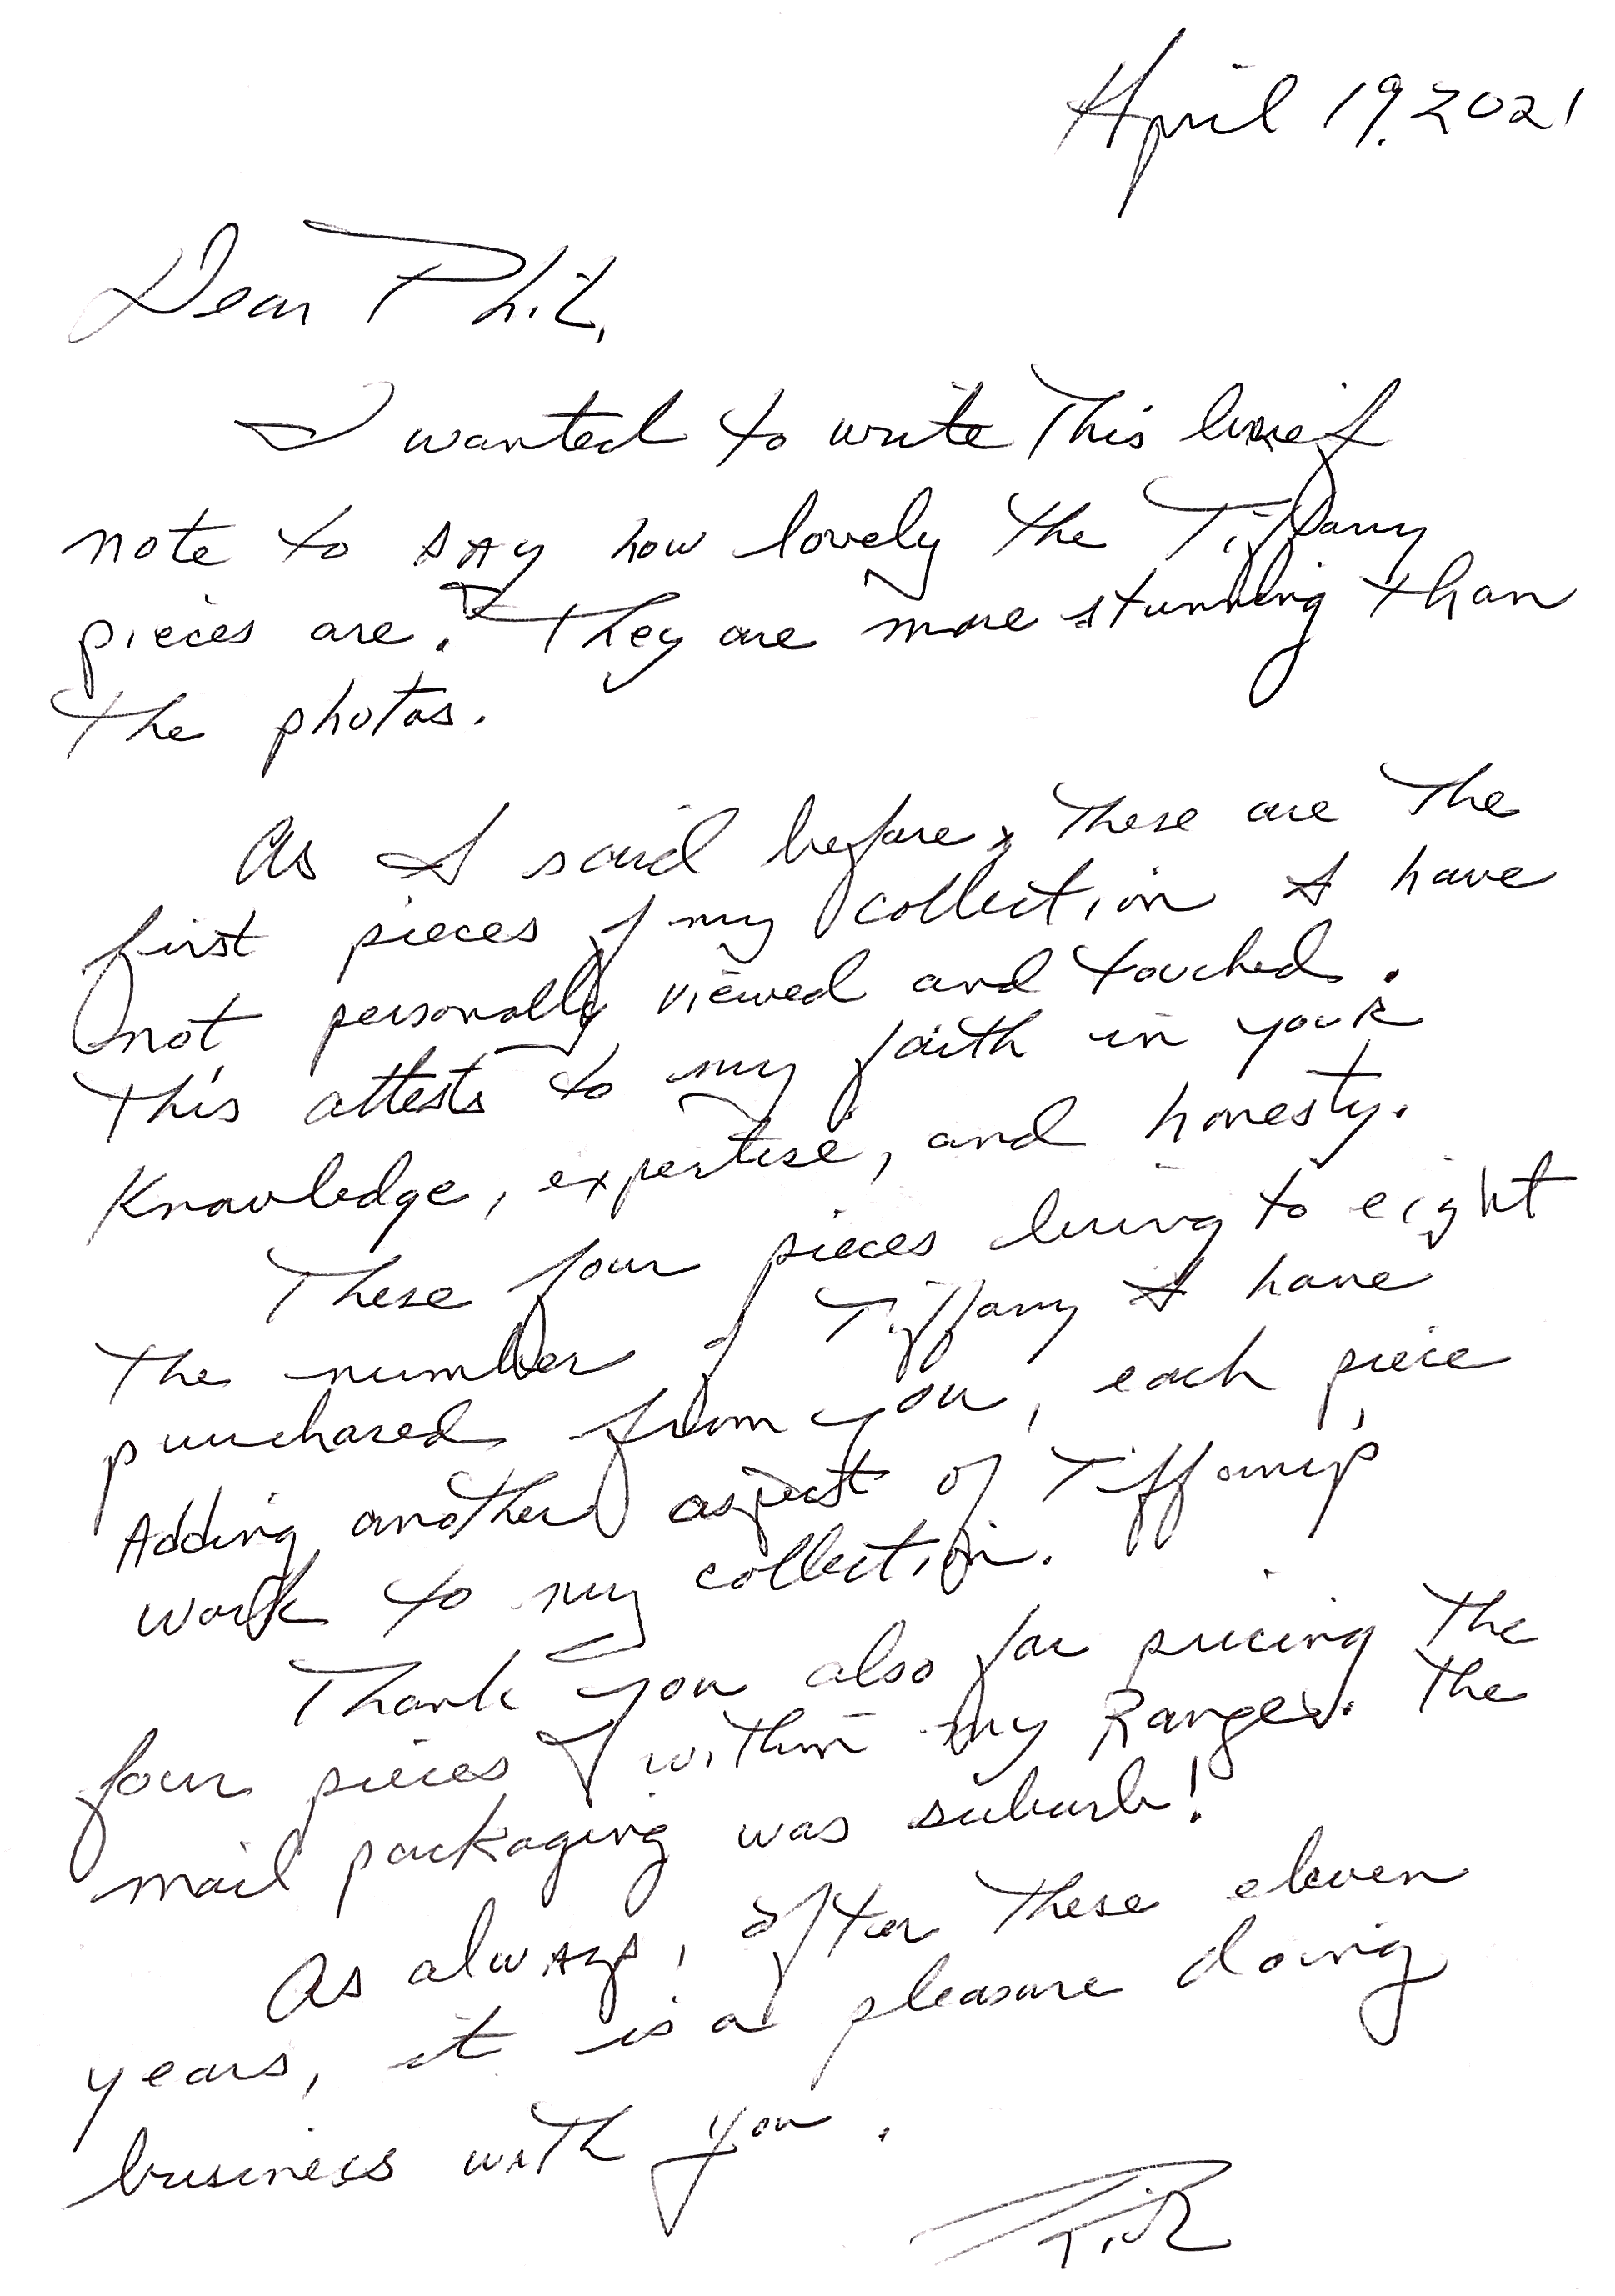 April 19, 2021
Dear Phil,
I wanted to write this brief
note to say how lovely the Tiffany
pieces are. They are more stunning than
the photos.
As I said before, these are the
first pieces of my collection I have
not personally viewed and touched.
This attests to my faith in your
knowledge, expertise, and honesty.
These four pieces bring to eight
the number of Tiffany I have
purchased from you, each piece
Adding another aspect of Tiffany's
work to my collection.
Thank you also for pricing the
four pieces within my Range. The
mail packaging was suburb!
As always, after these eleven
years, it is a pleasure doing
business with you.